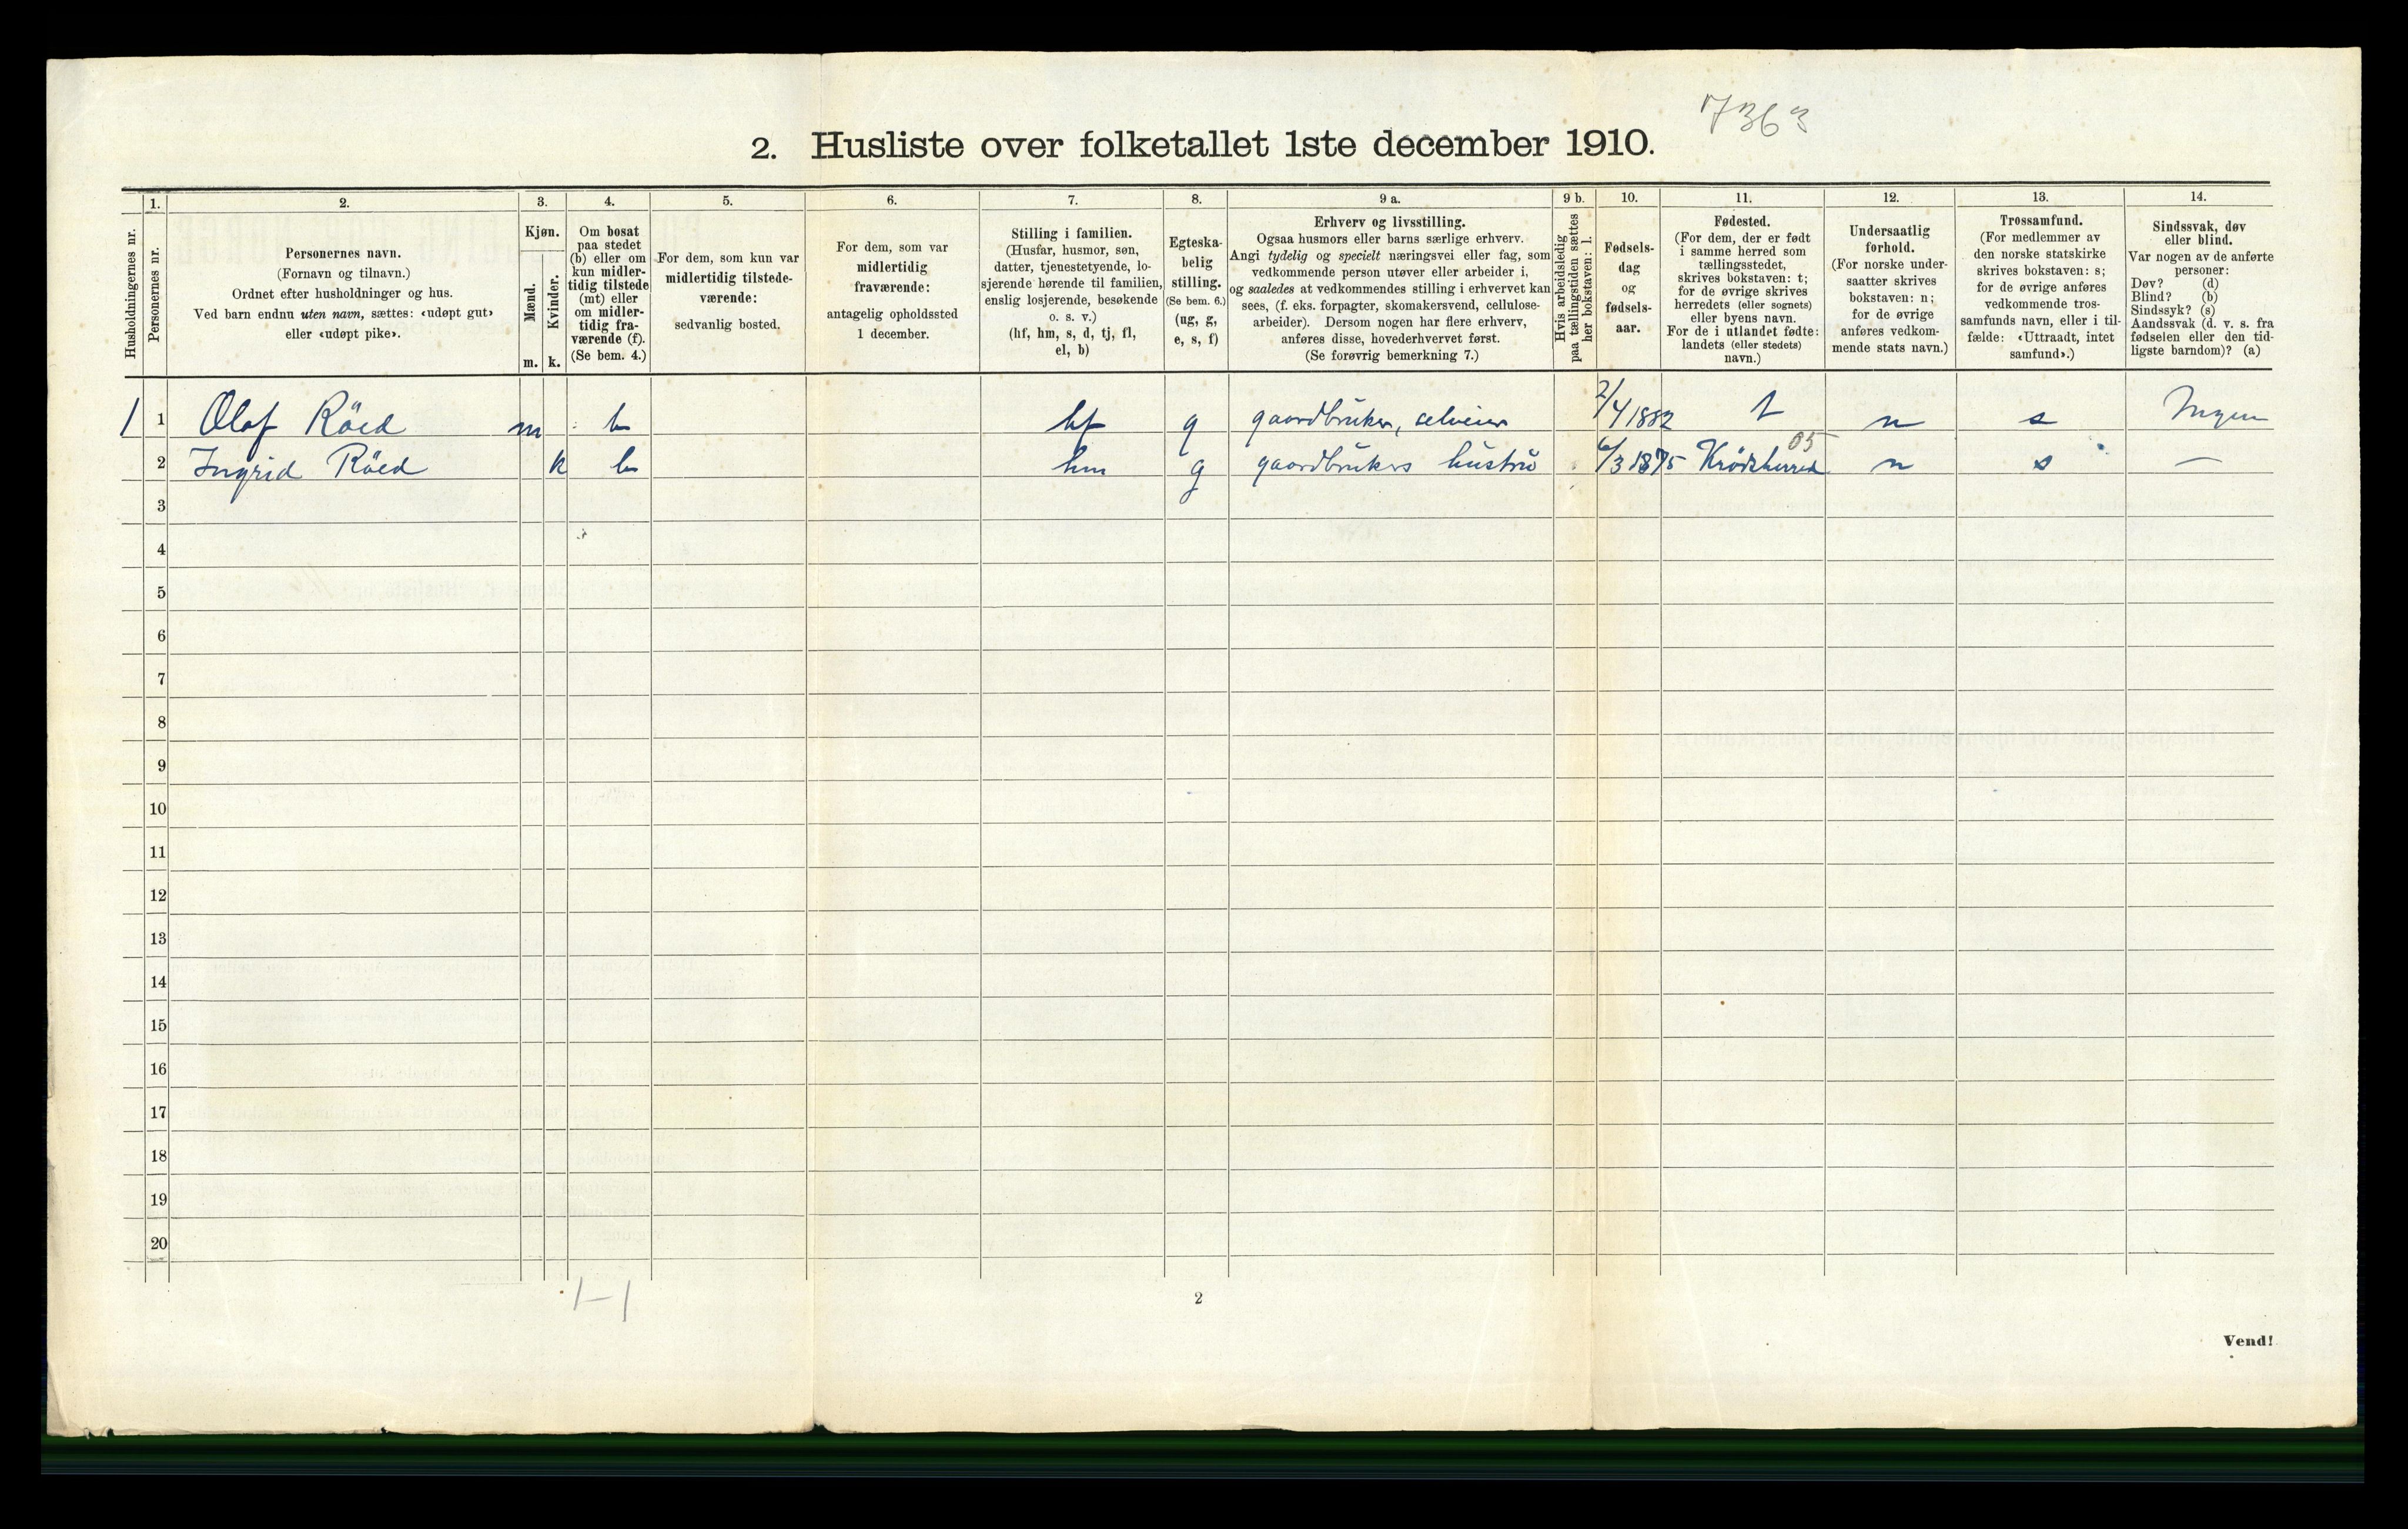 7363
2. Husliste over folketallet 1ste december 1910.
Husholdningernes nr.
1.
Personernes nr.
2.
Personernes navn.
(Fornavn og tilnavn.)
Ordnet efter husholdninger og hus.
Ved barn endnu uten navn, sættes: «udøpt gut»
eller «udøpt pike».
3.
Kjøn.
Mænd.
Kvinder.
m. k.
4.
Om bosat
paa stedet
(b) eller om
kun midler-
tidig tilstede
(mt) eller
om midler-
tidig fra-
værende (f).
(Se bem. 4.)
5.
For dem, som kun var
midlertidig tilstede-
værende:
sedvanlig bosted.
6.
For dem, som var
midlertidig
fraværende:
antagelig opholdssted
1 december.
7.
Stilling i familien.
(Husfar, husmor, søn,
datter, tjenestetyende, lo-
sjerende hørende til familien,
enslig losjerende, besøkende
o. s. v.)
(hf, hm, s, d, tj, fl,
el, b)
8.
Egteska-
belig
stilling.
(Se bem. 6.)
(ug, g,
e, s, f)
9 a.
Erhverv og livsstilling.
Ogsaa husmors eller barns særlige erhverv.
Angi tydelig og specielt næringsvei eller fag, som
vedkommende person utøver eller arbeider i,
og saaledes at vedkommendes stilling i erhvervet kan
sees, (f. eks. forpagter, skomakersvend, cellulose-
arbeider). Dersom nogen har flere erhverv,
anføres disse, hovederhvervet først.
(Se forøvrig bemerkning 7.)
9 b.
Hvis arbeidsledig
paa tællingstiden sættes
her bokstaven: l.
10.
Fødsels-
dag
og
fødsels-
aar.
11.
Fødested.
(For dem, der er født
i samme herred som
tællingsstedet,
skrives bokstaven: t;
for de øvrige skrives
herredets (eller sognets)
eller byens navn.
For de i utlandet fødte:
landets (eller stedets)
navn.)
12.
Undersaatlig
forhold.
(For norske under-
saatter skrives
bokstaven: n;
for de øvrige
anføres vedkom-
mende stats navn.)
13.
Trossamfund.
(For medlemmer av
den norske statskirke
skrives bokstaven: s;
for de øvrige anføres
vedkommende tros-
samfunds navn, eller i til-
fælde: «Uttraadt, intet
samfund».)
14.
Sindssvak, døv
eller blind.
Var nogen av de anførte
personer:
Døv? (d)
Blind? (b)
Sindssyk? (s)
Aandssvak (d. v. s. fra
fødselen eller den tid-
ligste barndom)? (a)
1 1 Olaf Röed m b hf g gaardbruker, selveier 2/4 1882 t n s Ingen
05
2 Ingrid Röed k b hm g gaardbrukers hustru 6/3 1875 Krödsherred n s —
3
4
5
6
7
8
9
10
11
12
13
14
15
16
17
18
19
20
1–1
2
Vend!